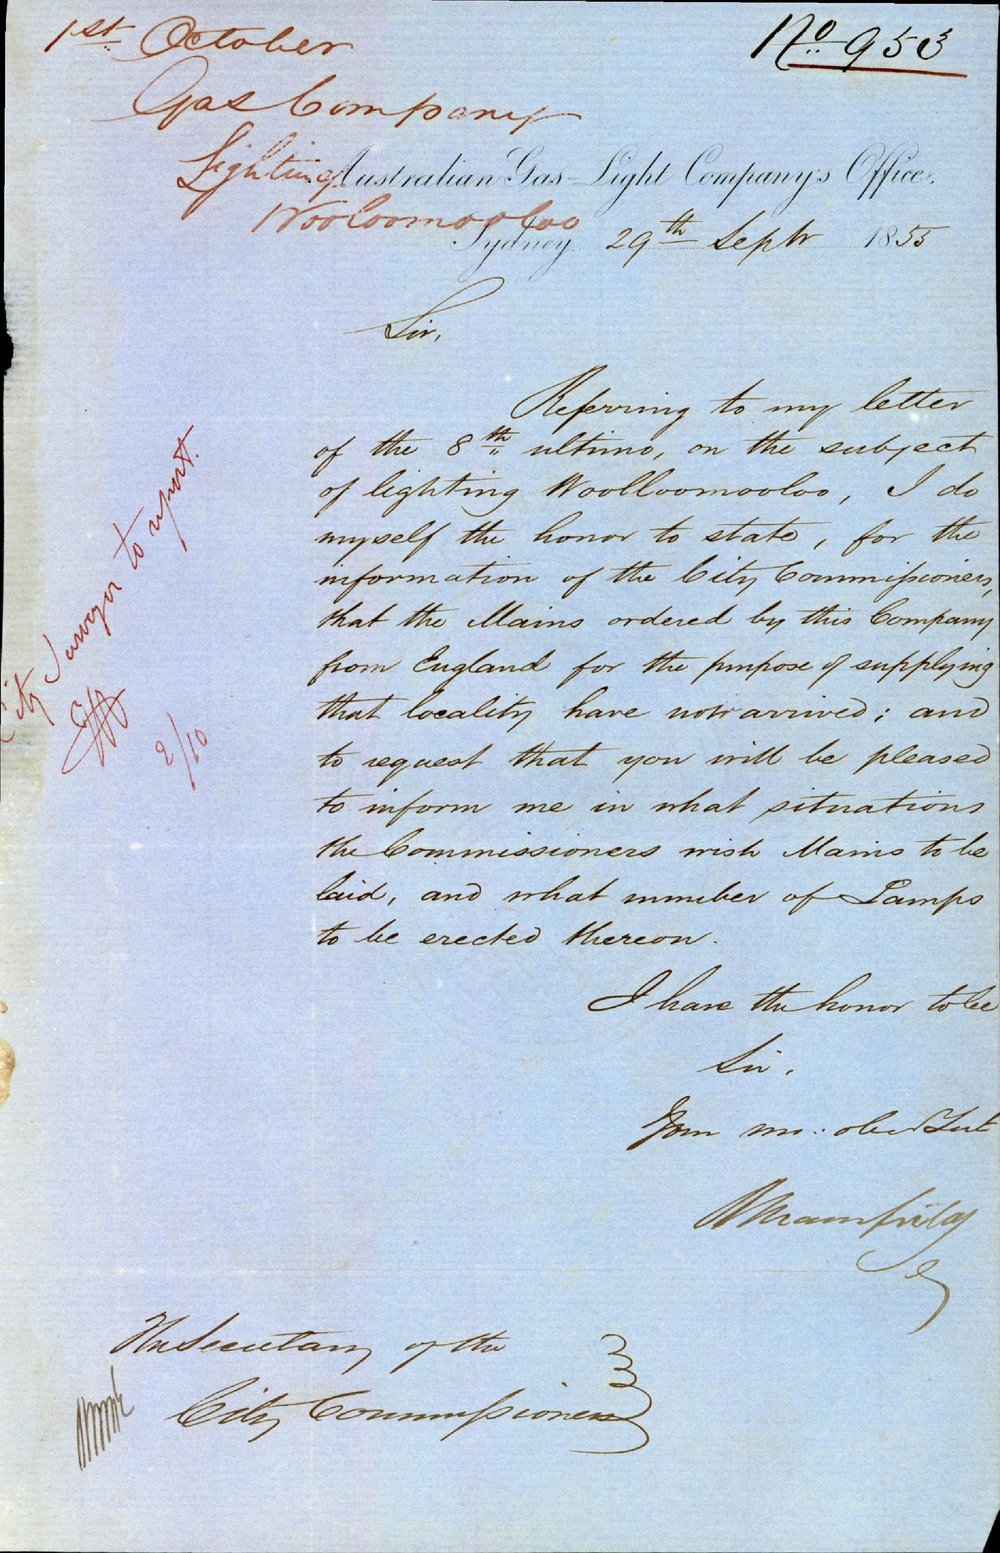 1st October
No 953
Gas Company
Lighting
Wooloomooloo
Australian Gas-Light Company's Office,
Sydney 29th Septr 1855
Sir,
Referring to my letter
of the 8th ultimo, on the subject
of lighting Woolloomooloo, I do
myself the honor to state, for the
information of the City Commissioners,
that the Mains ordered by this Company
from England for the purpose of supplying
that locality have now arrived; and
to request that you will be pleased
to inform me in what situations
the Commissioners wish Mains to be
laid, and what number of Lamps
to be erected thereon.
I have the honor to be
Sir,
Your mo: obed Svt
The Secretary of the
City Commissioners
City Surveyor to report.
2/10